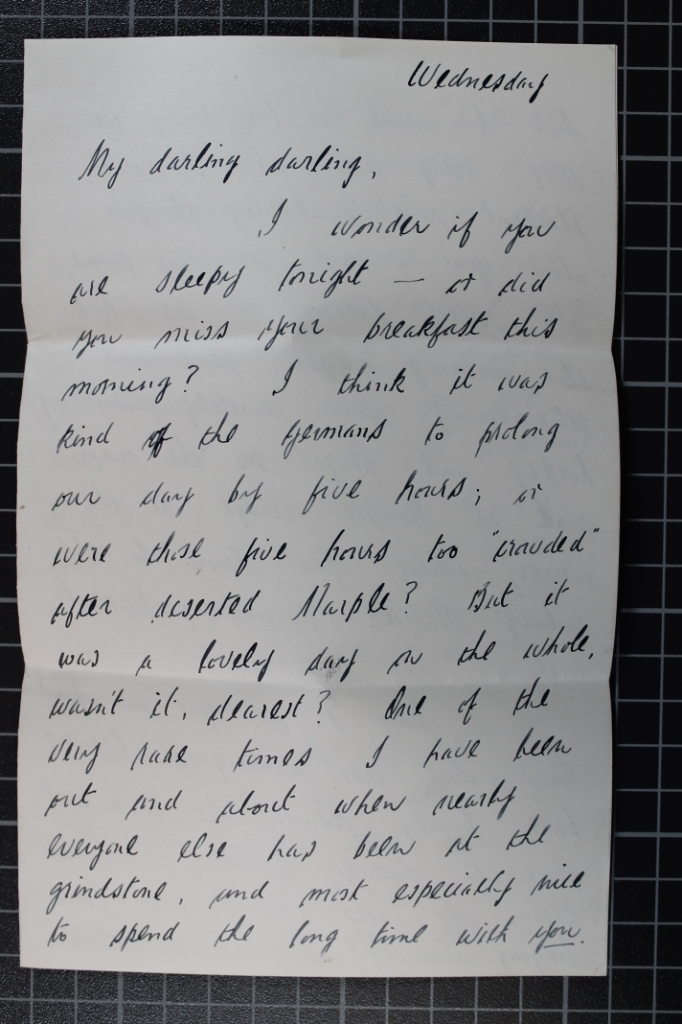 Wednesday
My darling darling,
I wonder if you
are sleepy tonight — or did
you miss your breakfast this
morning? I think it was
kind of the Germans to prolong
our day by five hours; or
were those five hours too "crowded"
after deserted Marple? But it
was a lovely day on the whole,
wasn't it, dearest? One of the
very rare times I have been
out and about when nearly
everyone else has been at the
grindstone, and most especially nice
to spend the long time with you.